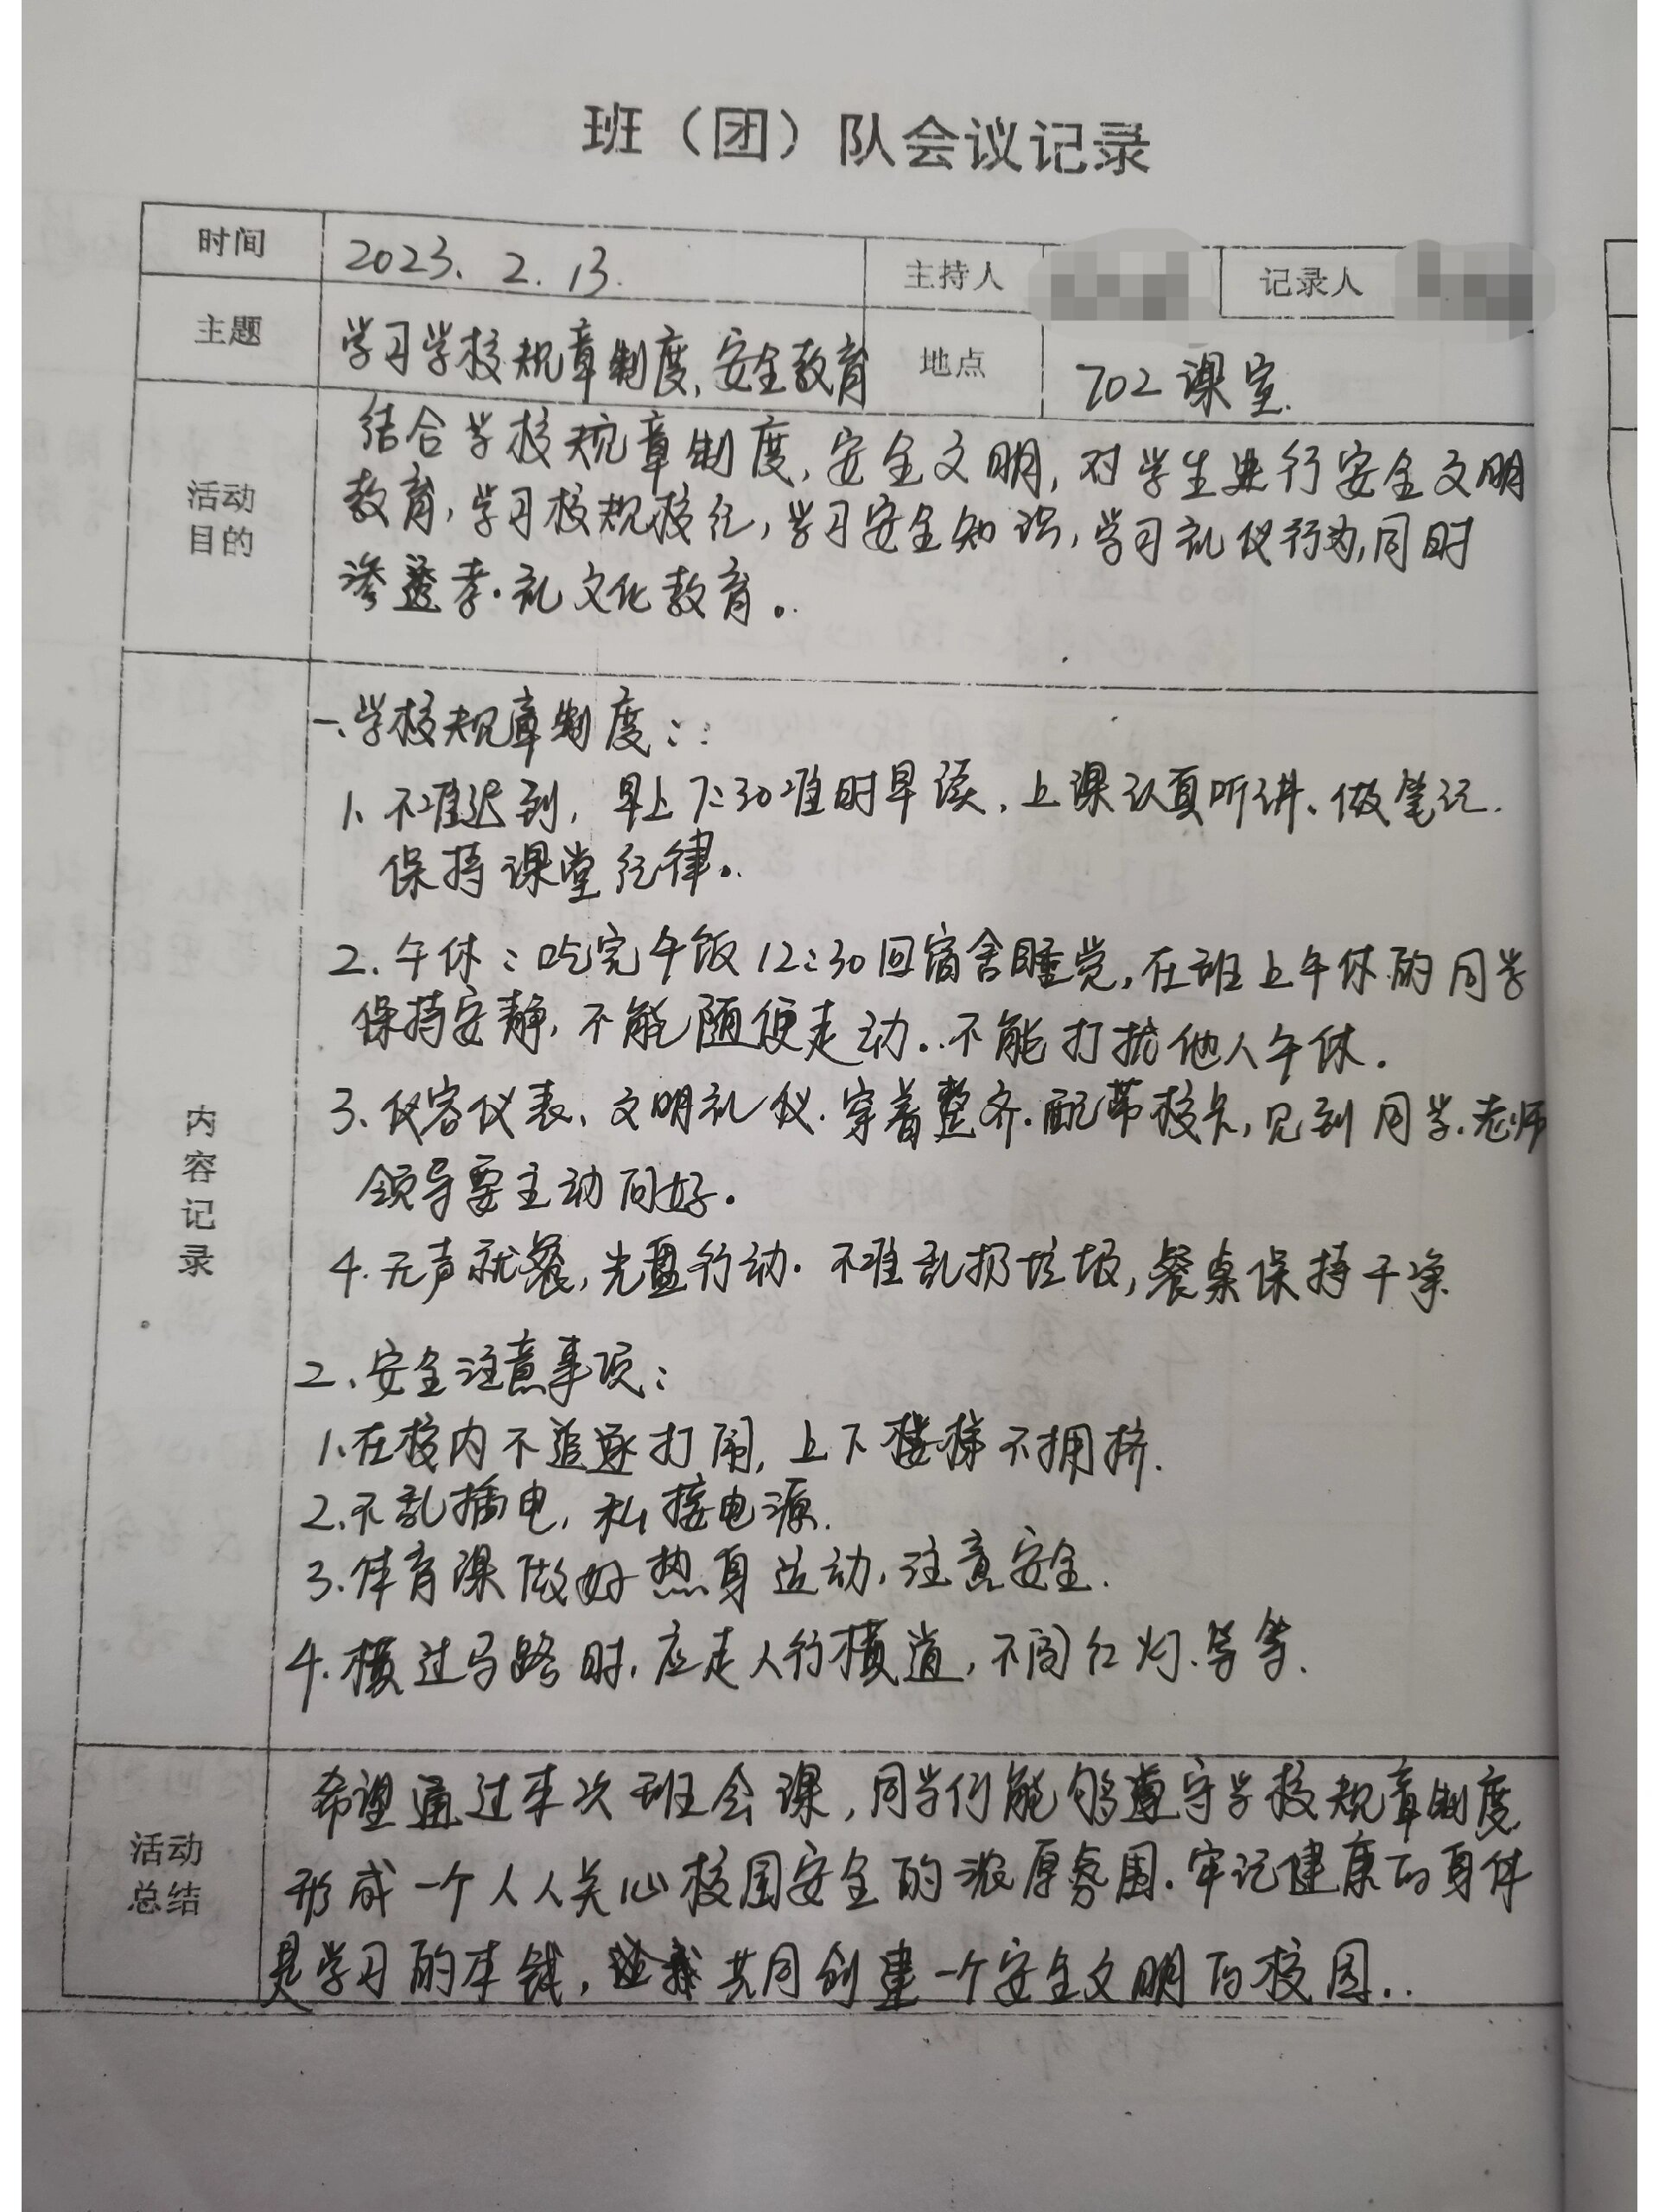 班（团）队会议记录
时间 2023. 2. 13. 主持人 记录人
主题 学习学校规章制度、安全教育 地点 702课室.
活动目的
结合学校规章制度，安全文明，对学生进行安全文明
教育，学习校规校纪，学习安全知识，学习礼仪行为，同时
渗透孝·礼文化教育。
内容记录
一、学校规章制度：
1、不准迟到，早上7:30准时早读，上课认真听讲、做笔记.
保持课堂纪律。
2、午休：吃完午饭12:30回宿舍睡觉，在班上午休的同学
保持安静，不能随便走动。不能打扰他人午休.
3、仪容仪表、文明礼仪.穿着整齐.配带校卡，见到同学.老师
领导要主动问好。
4.无声就餐，光盘行动.不准乱扔垃圾，餐桌保持干净
2、安全注意事项：
1、在校内不追逐打闹，上下楼梯不拥挤.
2、不乱插电，私接电源.
3.体育课做好热身运动，注意安全.
4.横过马路时，应走人行横道，不闯红灯、等等.
活动总结
希望通过本次班会课，同学们能够遵守学校规章制度
形成一个人人关心校园安全的浓厚氛围.牢记健康的身体
是学习的本钱，共同创建一个安全文明的校园..